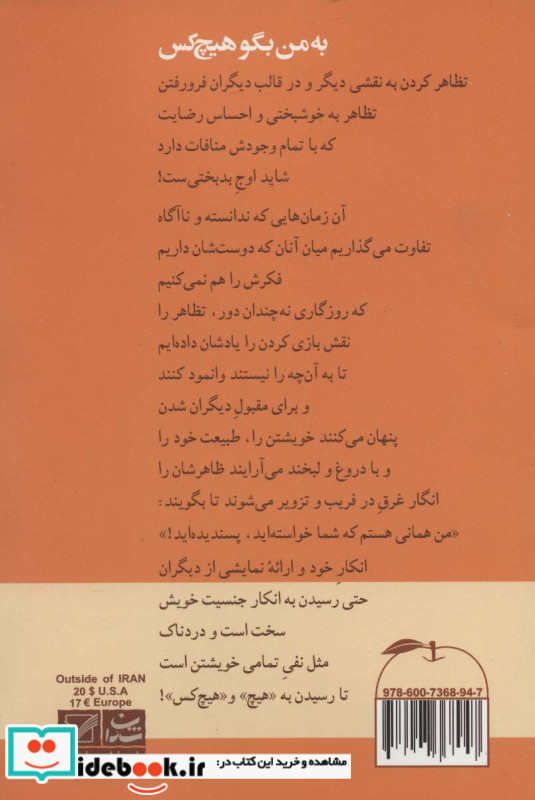 به من بگو هیچ‌کس
تظاهر کردن به نقشی دیگر و در قالب دیگران فرورفتن
تظاهر به خوشبختی و احساس رضایت
که با تمام وجودش منافات دارد
شاید اوجِ بدبختی‌ست!
آن زمان‌هایی که ندانسته و ناآگاه
تفاوت می‌گذاریم میان آنان که دوست‌شان داریم
فکرش را هم نمی‌کنیم
که روزگاری نه‌چندان دور، تظاهر را
نقش بازی کردن را یادشان داده‌ایم
تا به آن‌چه را نیستند وانمود کنند
و برای مقبولِ دیگران شدن
پنهان می‌کنند خویشتن را، طبیعت خود را
و با دروغ و لبخند می‌آرایند ظاهرشان را
انگار غرقِ در فریب و تزویر می‌شوند تا بگویند:
«من همانی هستم که شما خواسته‌اید، پسندیده‌اید!»
انکارِ خود و ارائهٔ نمایشی از دیگران
حتی رسیدن به انکار جنسیت خویش
سخت است و دردناک
مثل نفیِ تمامی خویشتن است
تا رسیدن به «هیچ» و «هیچ‌کس»!
Outside of IRAN
20 $ U.S.A
17 € Europe
978-600-7368-94-7
شادان
مشاهده و خرید این کتاب در:
idebook.ir